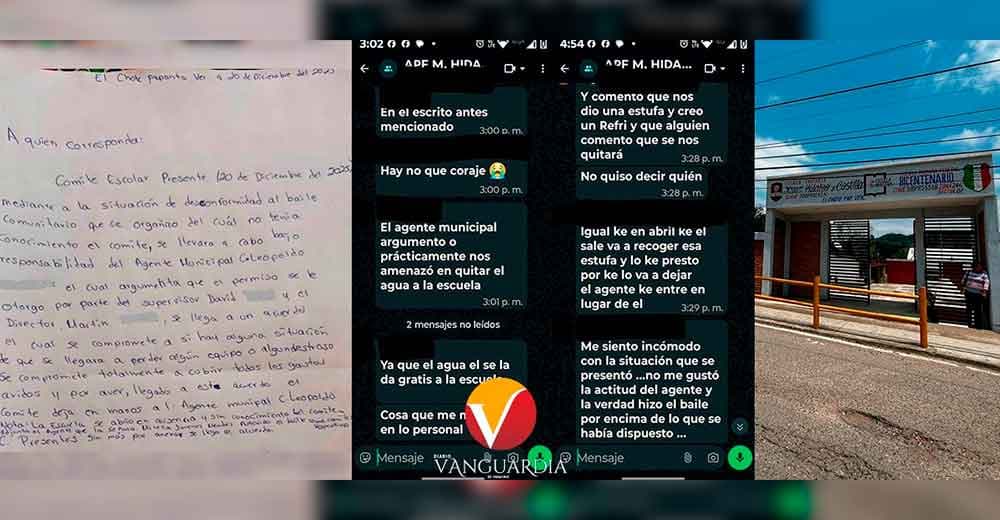 El Chote Papantla Ver a 20 de Diciembre del 2025
A quien corresponda:
Comite Escolar Presente (20 de Diciembre del 2025)
mediante a la situación de desconformidad al baile
comunitario que se organizo del cuál no tenia
conocimiento el comite, se llevara a cabo bajo
responsabilidad del Agente Municipal C. Leopoldo
el cual argumetita que el permiso se le
otorgo por parte del supervisor David y el
Director Martin , se llega a un acuerdo
el cual se compromete a si hay alguna situación
de que se llegara a perder algún equipo o algun destrozo
se compromete totalmente a cobrir todos los gastos
avidos y por aver, llegado a este acuerdo el
Comite deja en manos al Agente municipal C. Leopoldo
Nota: La Escuela se abrio en y sin conocimiento del comite
Presentes Sin más por se llega el acuerdo.
3:02
APF M. HIDA...
En el escrito antes
mencionado
3:00 p. m.
Hay no que coraje 😭
3:00 p. m.
El agente municipal
argumento o
prácticamente nos
amenazó en quitar el
agua a la escuela
3:01 p. m.
2 mensajes no leídos
Ya que el agua el se la
da gratis a la escuela
Cosa que me m
en lo personal
Mensaje
4:54
APF M. HIDA...
Y comento que nos
dio una estufa y creo
un Refri y que alguien
comento que se nos
quitará
3:28 p. m.
No quiso decir quién
3:28 p. m.
Igual ke en abril ke el
sale va a recoger esa
estufa y lo ke presto
por ke lo va a dejar
el agente ke entre en
lugar de el
3:29 p. m.
Me siento incómodo
con la situación que se
presentó ...no me gustó
la actitud del agente y
la verdad hizo el baile
por encima de lo que se
había dispuesto ...
Mensaje
V
DIARIO
VANGUARDIA
DE VERACRUZ
BICENTENARIO